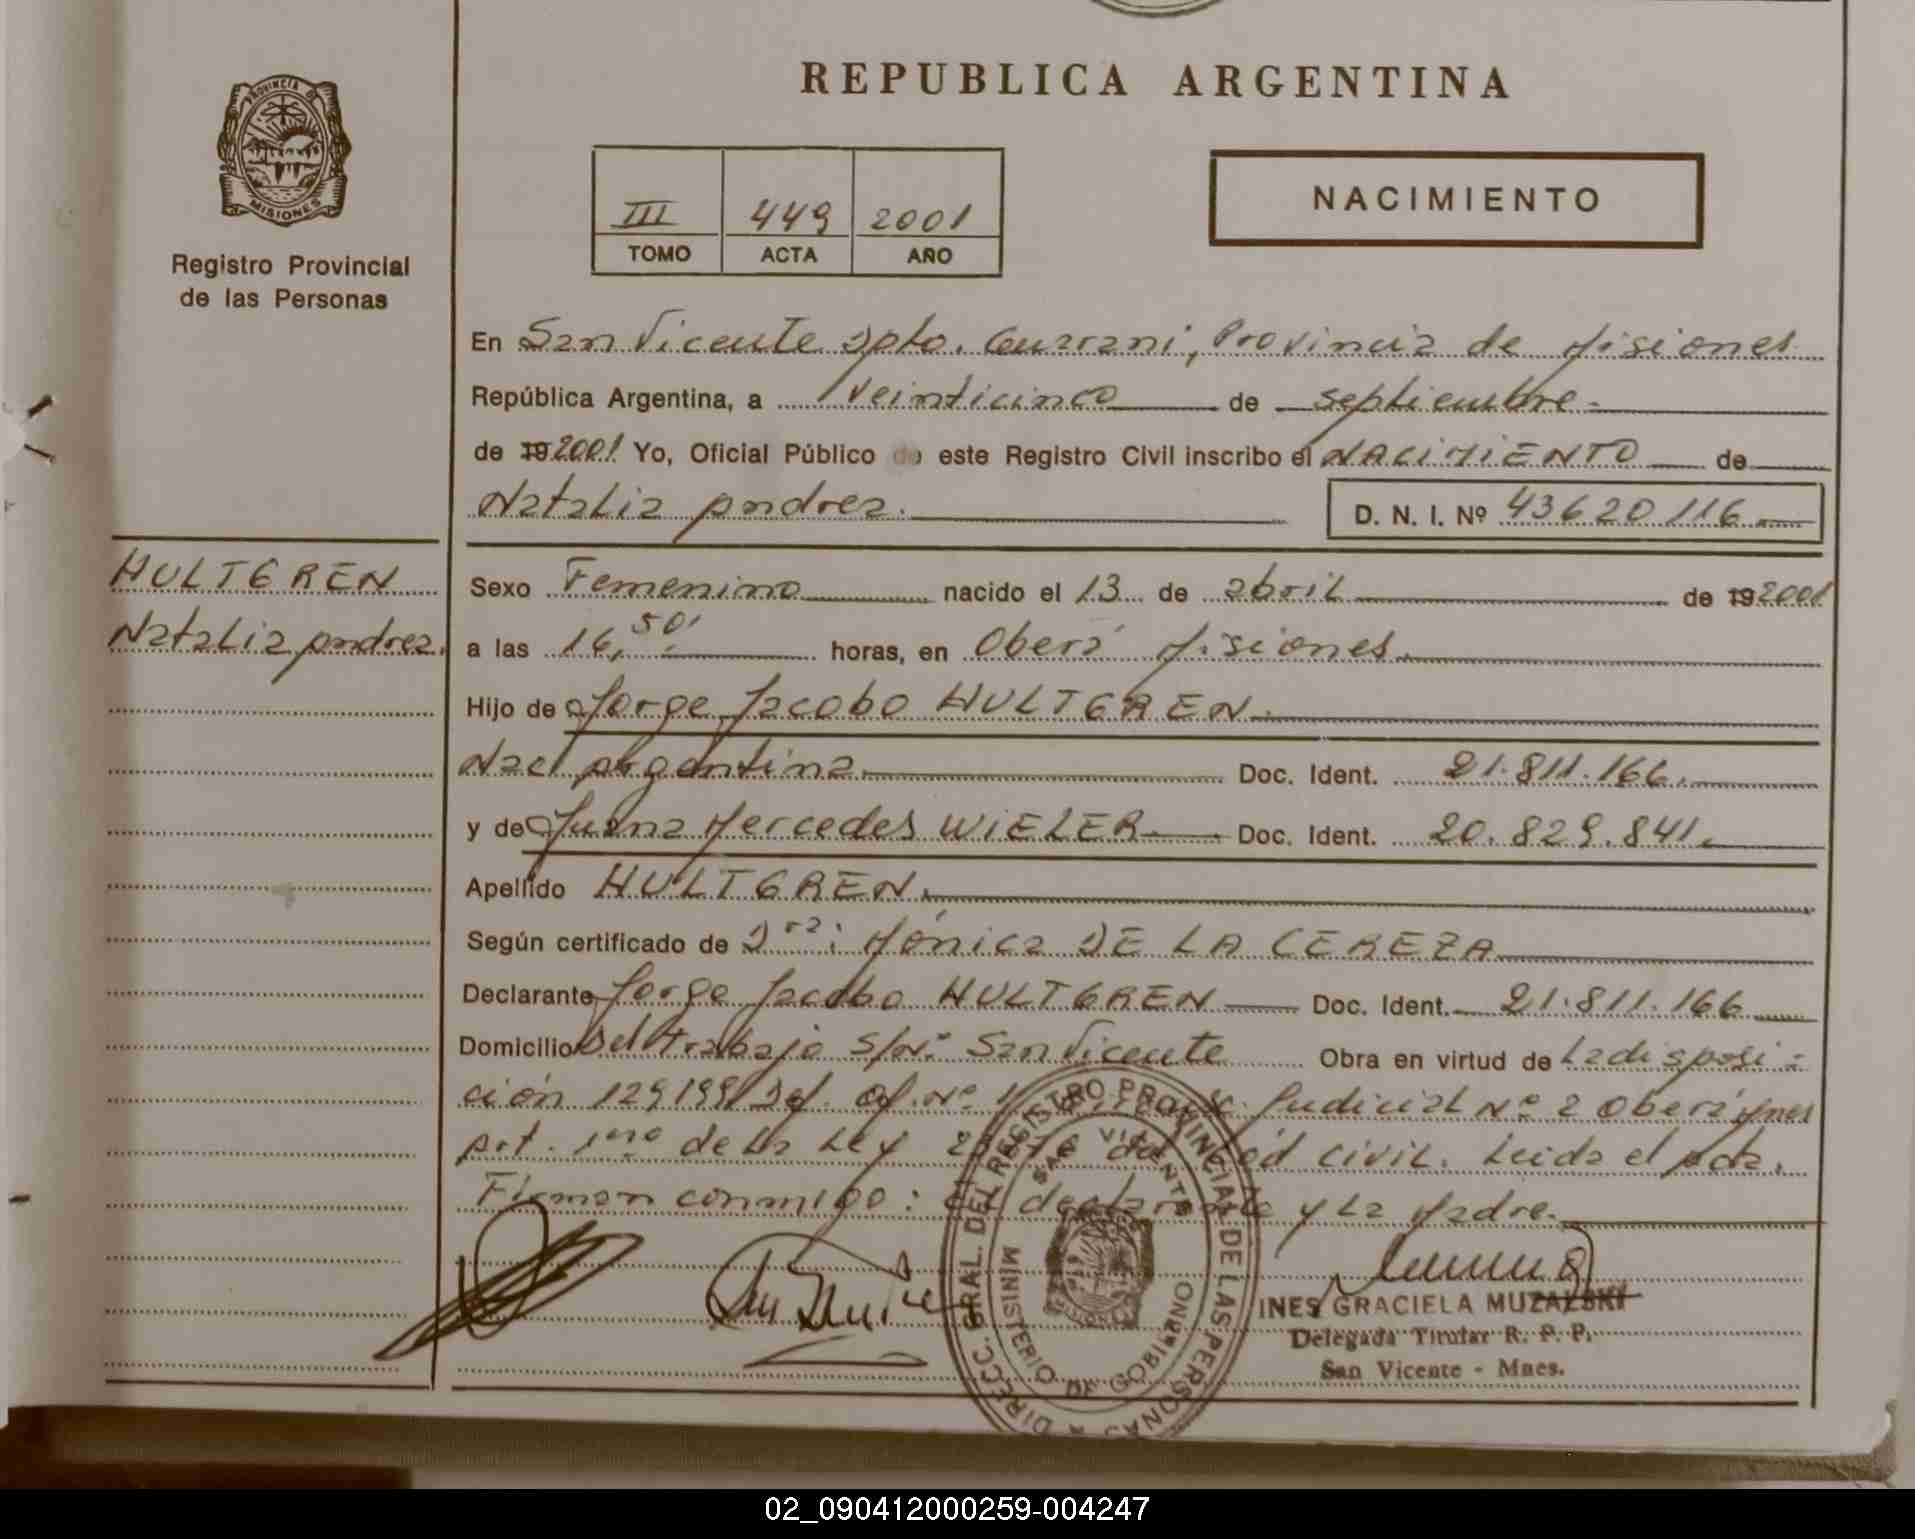 PROVINCIA D
MISIONES
Registro Provincial
de las Personas
REPUBLICA ARGENTINA
III 449 2001
TOMO ACTA AÑO
NACIMIENTO
En San Vicente Dpto. Guarani, Provincia de Misiones
República Argentina, a Veinticinco de septiembre.
de 19 2001 Yo, Oficial Público de este Registro Civil inscribo el NACIMIENTO de
Natalia Andrea. D. N. I. Nº 43620116
HULTGREN
Natalia Andrea.
Sexo Femenino nacido el 13 de abril de 19 2001
a las 16,50' horas, en Oberá Misiones.
Hijo de Jorge Jacobo HULTGREN.
Nac Argentina Doc. Ident. 21.811.166.
y de Juana Mercedes WIELER Doc. Ident. 20.829.841.
Apellido HULTGREN.
Según certificado de Dra: Mónica DE LA CEREZA
Declarante Jorge Jacobo HULTGREN Doc. Ident. 21.811.166
Domicilio Del trabajo S/Nº San Vicente Obra en virtud de La disposi-
ción 129199 Judicial Nº 2 Oberá Mnes
Art. 1ero de la Ley civil. Leida el Acta.
Firman conmigo: el declarante y La Madre.
DIRECC. GRAL. DEL REGISTRO PROVINCIAL DE LAS PERSONAS
SAN VICENTE
MINISTERIO DE GOBIERNO
INES GRACIELA MUZALSKI
Delegada Titular R. P. P.
San Vicente - Mnes.
02_090412000259-004247